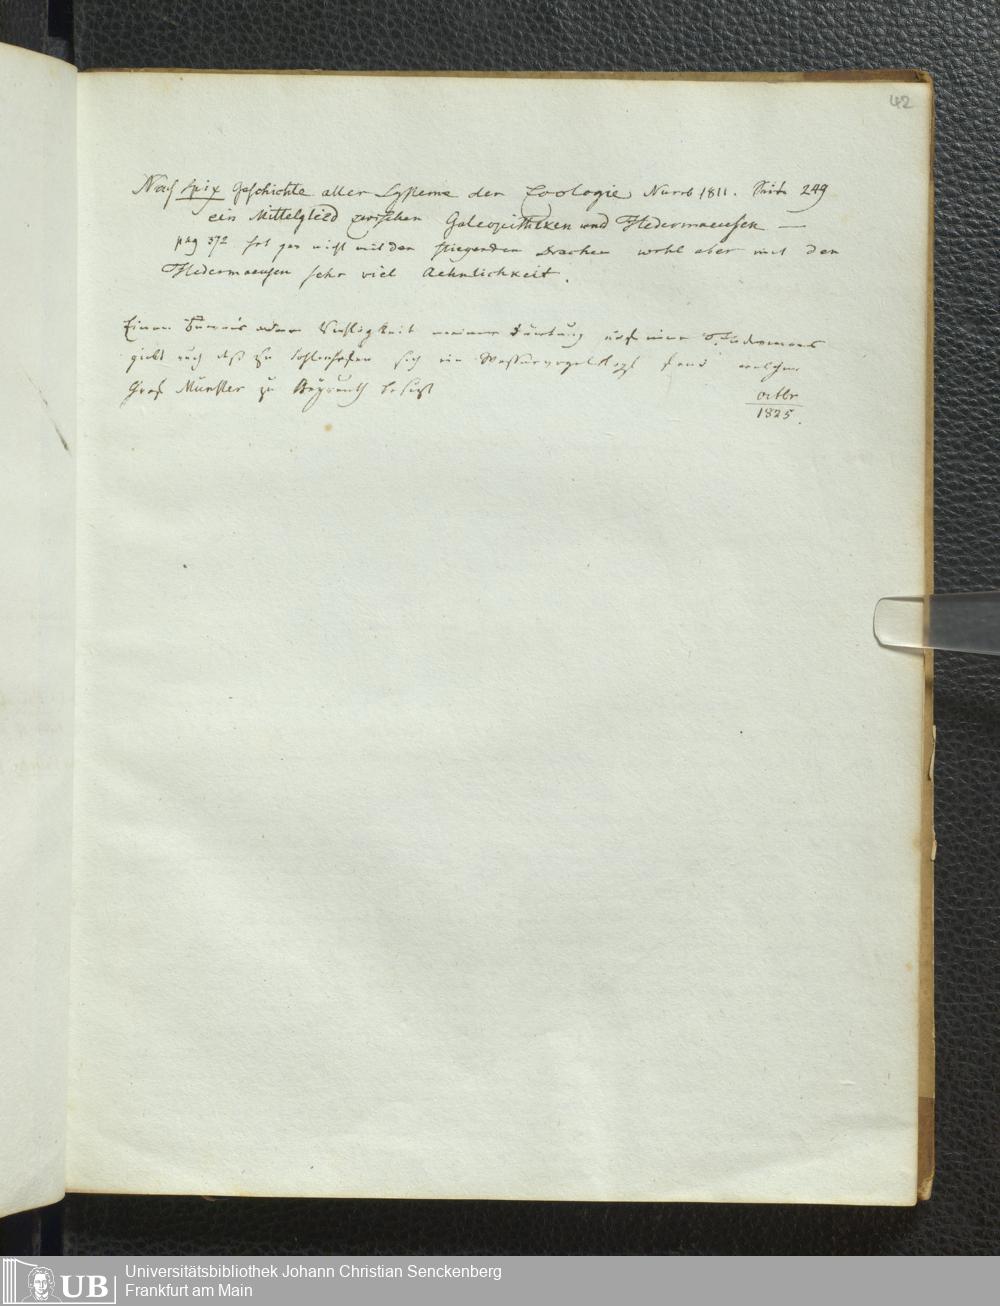 42
Nach Spix Geschichte aller Systeme der Zoologie, Nurnb 1811. Seite 249
ein Mittelglied zwischen Galeopitheken und Fledermaeusen —
pag 372 hat gar nicht mit den fliegenden Drachen wohl aber mit den
Fledermaeusen sehr viel Aehnlichkeit.
Einen Beweis der Richtigkeit meiner Deutung auf eine Fledermaus
giebt auch daß zu Sohlenhofen sich ein Wasservogelkopf fand welchen
Graf Münster zu Bayreuth besizt
octbr
1825.
Universitätsbibliothek Johann Christian Senckenberg
Frankfurt am Main
UB